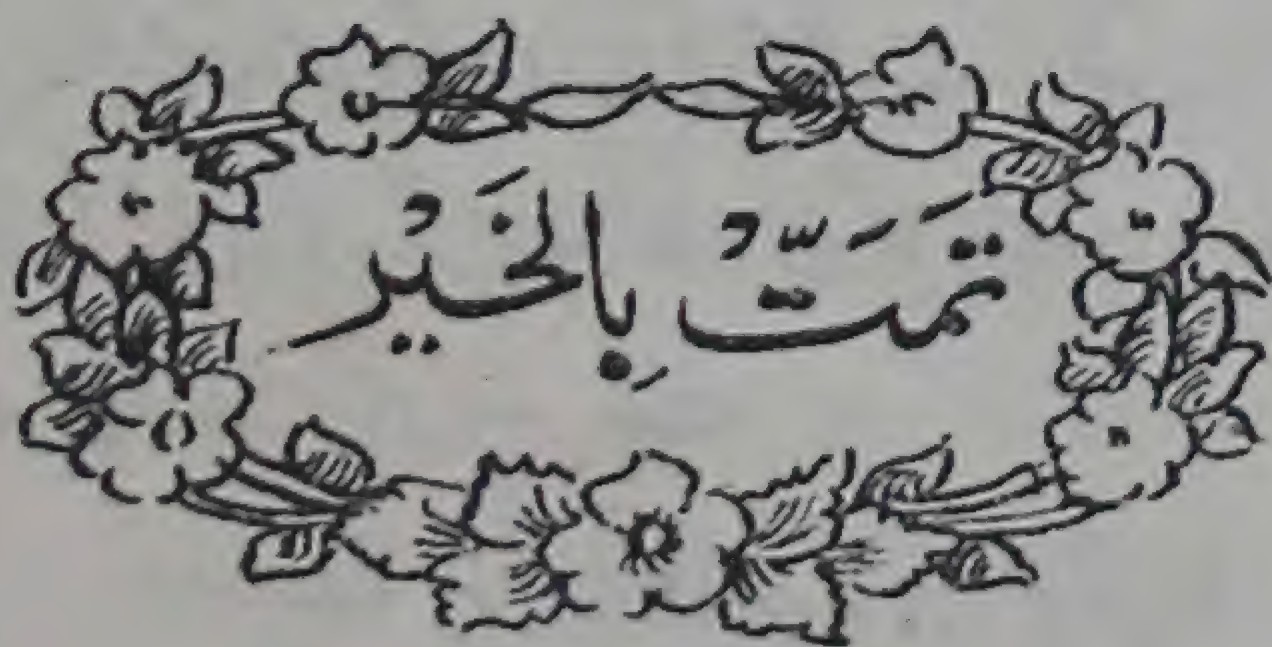 تَمَّتْ بِالخَيْر